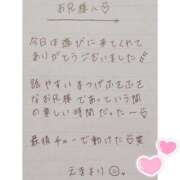 お兄様へ♡
今日は遊びに来てくれて
ありがとうございました
話やすい まつげふさふさ
なお兄様であっという間
の楽しい時間だったー♡
最後チューで動けた♡笑
えまより